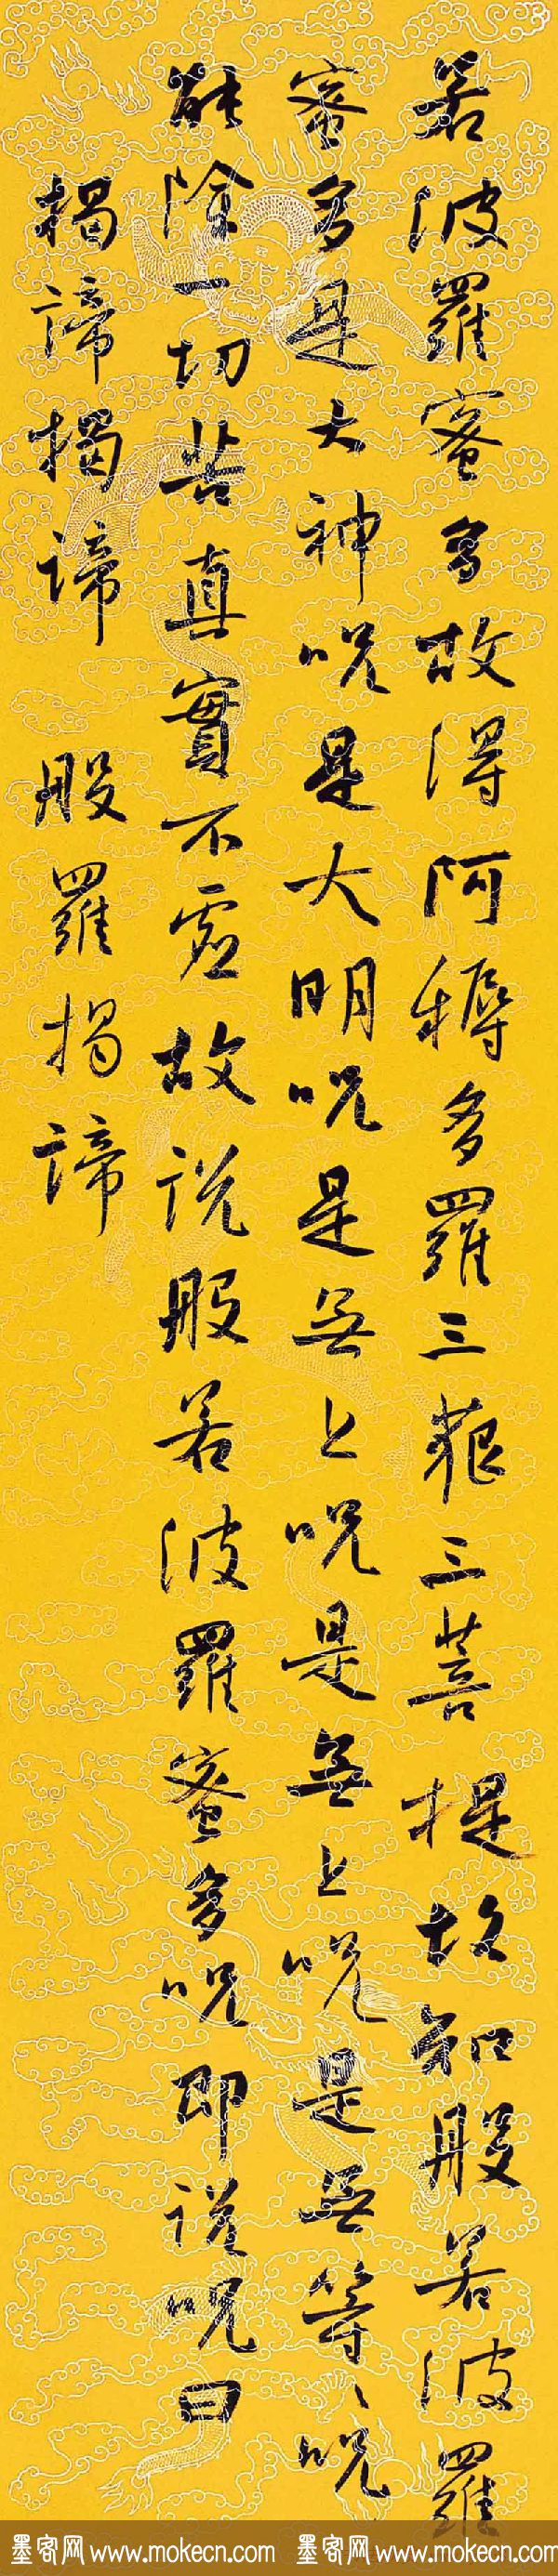 若波羅蜜多故得阿耨多羅三藐三菩提故知般若波羅
蜜多是大神咒是大明咒是無上咒是無上咒是無等〻咒
能除一切苦真實不虛故說般若波羅蜜多咒即說咒曰
揭諦揭諦 般羅揭諦
墨客网 www.mokecn.com 墨客网 www.mokecn.com